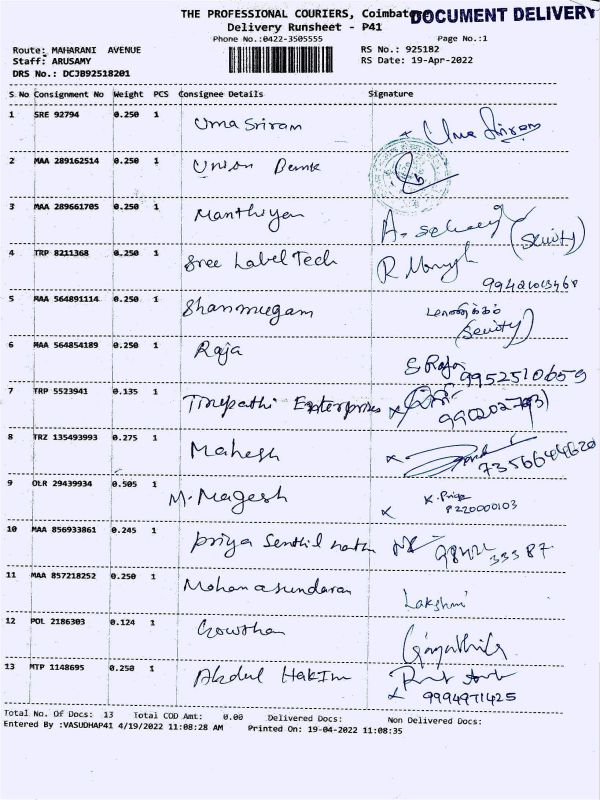 THE PROFESSIONAL COURIERS, Coimbato
DOCUMENT DELIVERY
Delivery Runsheet - P41
Phone No.:0422-3505555
Page No.:1
Route: MAHARANI AVENUE
RS No.: 925182
Staff: ARUSAMY
RS Date: 19-Apr-2022
DRS No.: DCJB92518201
S. No Consignment No Weight PCS Consignee Details Signature
1 SRE 92794 0.250 1 Uma Sriram Uma Sriram
2 MAA 289162514 0.250 1 Union Bank
3 MAA 289661705 0.250 1 Manthiyen A.
(Seurity)
4 TRP 8211368 0.250 1 Sree Label Tech R
5 MAA 564891114 0.250 1 Shanmugam
(Seurity)
6 MAA 564854189 0.250 1 Raja S Raja 9952510659
7 TRP 5523941 0.135 1 Tirupathi Enterprises
8 TRZ 135493993 0.275 1 Mahesh
7356644620
9 OLR 29439934 0.505 1 M. Magesh K. Priya
8220000103
10 MAA 856933861 0.245 1 Priya Senthil nathan 98422 33387
11 MAA 857218252 0.250 1 Mohanasundaram Lakshmi
12 POL 2186303 0.124 1 Gowtham Gayathri
13 MTP 1148695 0.250 1 Abdul Hakim
9994971425
Total No. Of Docs: 13 Total COD Amt: 0.00 Delivered Docs: Non Delivered Docs:
Entered By :VASUDHAP41 4/19/2022 11:08:28 AM Printed On: 19-04-2022 11:08:35